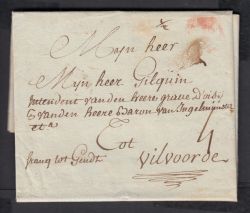 Mijn heer
Mijn heer Gilquin
Intendent vanden heere grave d'ivis
& vanden heere Baron van Ingelmunster
et a
Tot
vilvoorde
franq tot Gendt
4